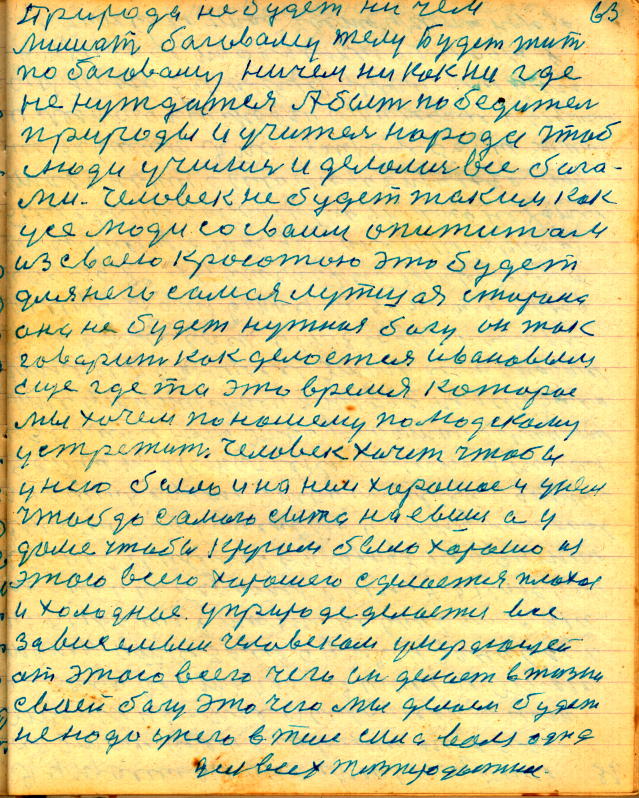 Природа не будет ни чем 63
лишат баговаму телу Будет жит
по баговаму ничем ни как ни где
не нуждатся А быт победител
природы и учител народа чтоб
люди училис и делалис все бога-
ми. Человек не будет таким как
усе люди со сваим опититам
из сваею красотою это будет
для него самая лутшая старана
она не будет нужная богу он так
говарит как делается ивановым
еще где та это время которое
мы хочем по нашему по людскому
устретит. Человек хочет чтобы
у него было и на нем хорошое и у нем
чтоб до самого сыта наевши а у
доме чтобы кругом было хорошо из
этого всего хорошего сделается плохое
и холодное. у природе делается все
зависемым человекам умерающей
от этого всего чего он делает в жизни
своей богу это чего мы делаем будет
не надо у него в теле сила воля одна
для всех